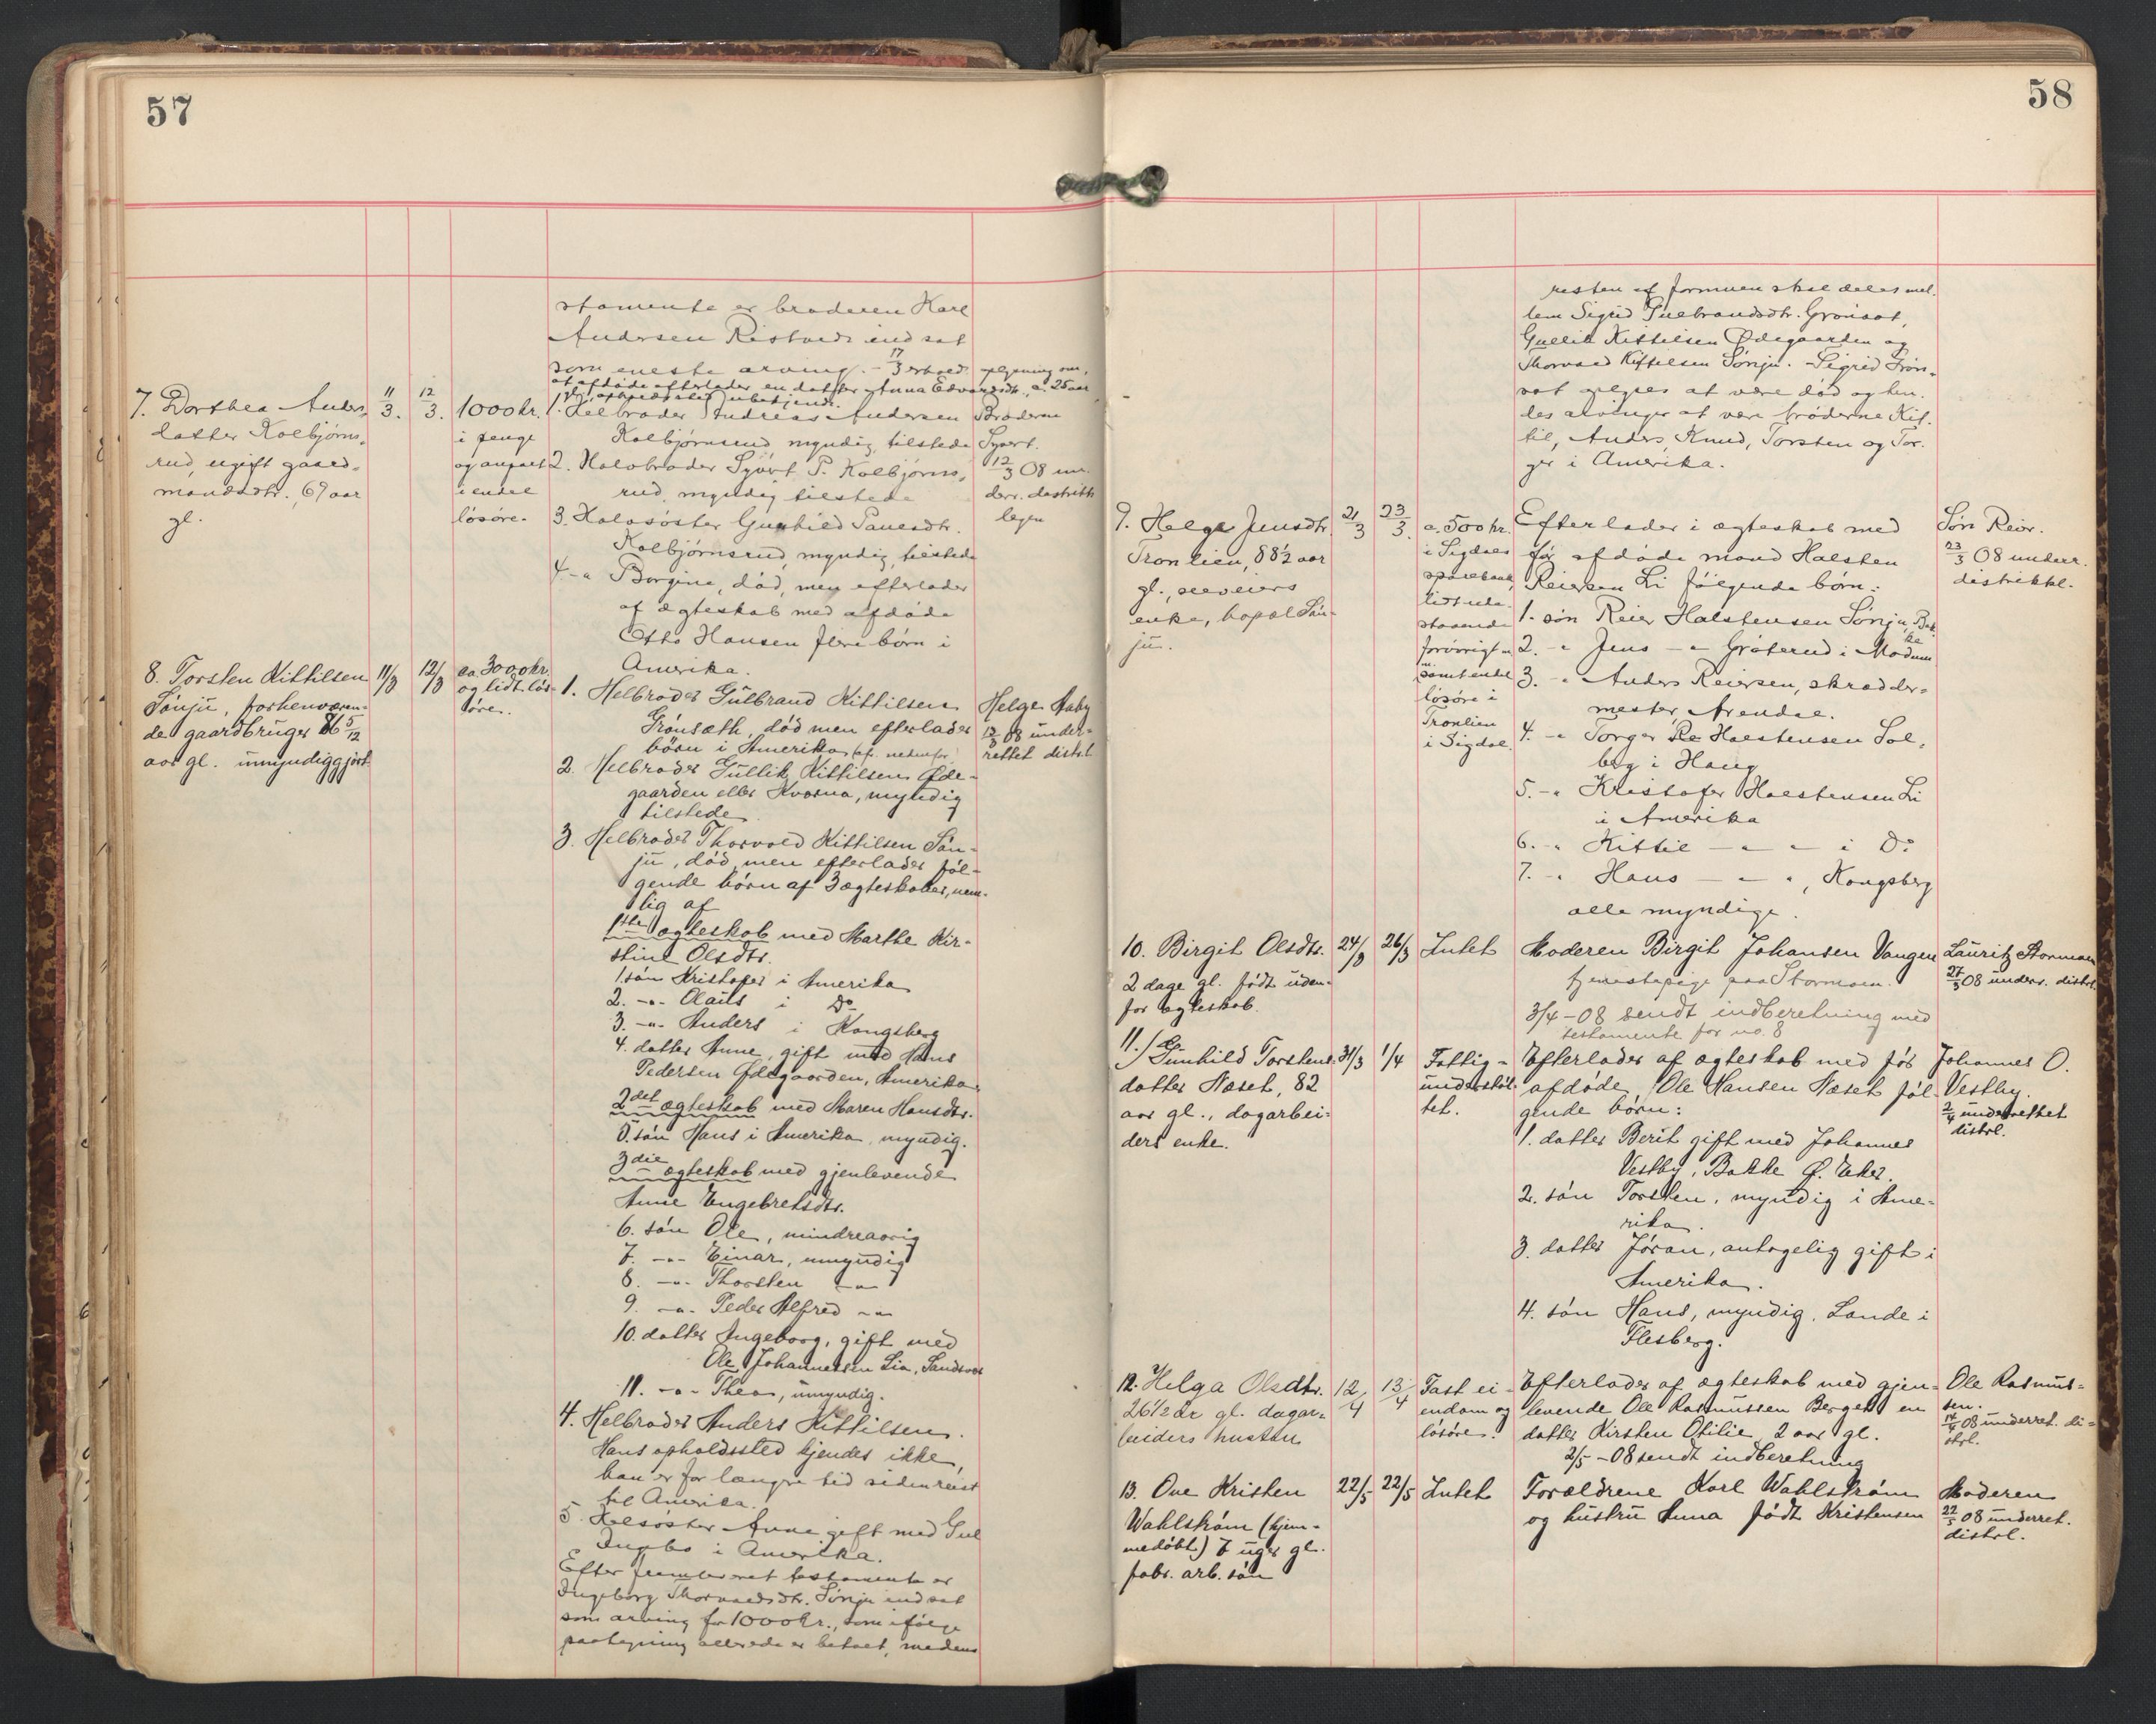 57
stamente er broderen Karl
Andersen Ristvedt indsat
som eneste arving. - 17/3 erholdt oplysning om,
at afdøde efterlader en datter Anna Edvardsdtr., c. 25 aar,
7. Dorthea Anders-
datter Kolbjørns-
rud, ugift gaard-
mandsdtr., 69 aar
gl.
11/3.
12/3.
1000 kr.
i penge
og anpart
i endel
løsøre.
1. Helbroder Andreas Andersen
Kolbjørnsrud, myndig, tilstede
2. Halvbroder Syvert P. Kolbjørns-
rud, myndig tilstede
3. Halvsøster Gunhild Paulsdtr.
Kolbjørnsrud, myndig, tilstede
4. -"- Borgine, død, men efterlader
af ægteskab med afdøde
Otto Hansen flere børn i
Amerika.
Broderen
Syvert.
12/3 08 un-
derr. distrikts
legen
8. Torsten Kittilsen
Sønju, forhenværen-
de gaardbruger 86 5/12
aar gl. umyndiggjort
11/3
12/3
ca. 3000 kr.
og lidt løs-
øre.
1. Helbroder Gulbrand Kittilsen
Grønsæth, død men efterlader
børn i Amerika (cfr. nedenfor)
2. Helbroder Gullik Kittilsen Øde-
gaarden eller Kvarna, myndig
tilstede
3. Helbroder Thorvald Kittilsen Søn-
ju, død, men efterlader føl-
gende børn af 3 ægteskaber, nem-
lig af
1ste ægteskab med Marthe Kir-
stine Olsdtr.
1. søn Kristofer i Amerika
2. -"- Olaus i Do
3. -"- Anders i Kongsberg
4. datter Anne, gift med Hans
Pedersen Ødegaarden, Amerika
2det ægteskab med Maren Hansdtr.
5. søn Hans i Amerika, myndig.
3die ægteskab med gjenlevende
Anne Engebretsdtr.
6. søn Ole, mindreaarig
7. -"- Einar, umyndig
8. -"- Thorsten -"-
9. -"- Peder Alfred -"-
10. datter Ingeborg, gift med
Ole Johannessen Lia, Sandsvær
11. -"- Thea, umyndig.
4. Helbroder Anders Kittilsen.
Hans opholdssted kjendes ikke,
han er for længre tid siden reist
til Amerika.
5. Helsøster Anne gift med Gul
Ingbo i Amerika.
Efter fremleveret testamente er
Ingeborg Thorvaldsdtr. Sønju indsat
som arving for 1000 kr., som ifølge
paategning allerede er betalt, medens
Helge Aaby
12/3 08 under-
rettet distr.l
58
resten af formuen skal deles mel-
lem Sigrid Gulbrandsdtr. Grønsæt,
Gullik Kittilsen Ødegaarden og
Thorvald Kittilsen Sønju. - Sigrid Grøn-
sæt opgives at være død og hen-
des arvinger at være brødrene Kit-
til, Anders, Knud, Torsten og Tor-
ger i Amerika.
9. Helge Jensdtr.
Tronlien, 88 1/2 aar
gl., selveiers
enke, bopæl Søn-
ju.
21/3
23/3.
c. 500 kr.
i Sigdals
sparebank,
lidt ude-
staaende
forøvrigt
samt endel
løsøre i
Tronlien
i Sigdal.
Efterlader i ægteskab med
før afdøde mand Halsten
Reiersen Li følgende børn:
1. søn Reier Halstensen Sønju, Bak-
ke
2. -"- Jens -"- Gråterud i Modum
3. -"- Anders Reiersen, skrædder-
mester, Arendal.
4. -"- Torger Halstensen Sol-
berg i Haug
5. -"- Kristofer Halstensen Li
i Amerika
6. -"- Kittil -"- -"- i Do
7. -"- Hans -"- -"-, Kongsberg
alle myndige.
Søn Reier.
23/3 08 underr.
distriktsl.
10. Birgit Olsdtr.
2 dage gl. født uden-
for ægteskab.
24/3
26/3
Intet
Moderen Birgit Johansen Vangen
tjenestepige paa Stormoen.
3/4 - 08 sendt indberetning med
testamente for no. 8
Lauritz Stormoen
27/3 08 underr. distrl.
11. Gunhild Torstens-
datter Næset, 82
aar gl., dagarbei-
ders enke.
31/3
1/4
Fattig-
understøt-
tet.
Efterlader af ægteskab med før
afdøde Ole Hansen Næset føl-
gende børn:
1. datter Berit gift med Johannes
Vestby, Bakke Ø. Eker.
2. søn Torsten, myndig i Ame-
rika.
3. datter Jøran, antagelig gift i
Amerika.
4. søn Hans, myndig, Lande i
Flesberg.
Johannes O.
Vestby.
2/4 underrettet
distrl.
12. Helga Olsdtr.
26 1/2 år gl. dagar-
beiders hustru
12/4
13/4
Fast ei-
endom og
løsøre.
Efterlader af ægteskab med gjen-
levende Ole Rasmussen Berget en
datter Kirsten Otilie, 2 aar gl.
2/5 - 08 sendt indberetning
Ole Rasmus-
sen.
14/4 08 underret. di-
strl.
13. Ove Kristen
Wahlstrøm (hjem-
medøbt) 7 uger gl.
fabr. arb. søn
22/5
22/5
Intet
Forældrene Karl Wahlstrøm
og hustru Anna født Kristensen
Moderen
22/5 08 underret.
distrl.